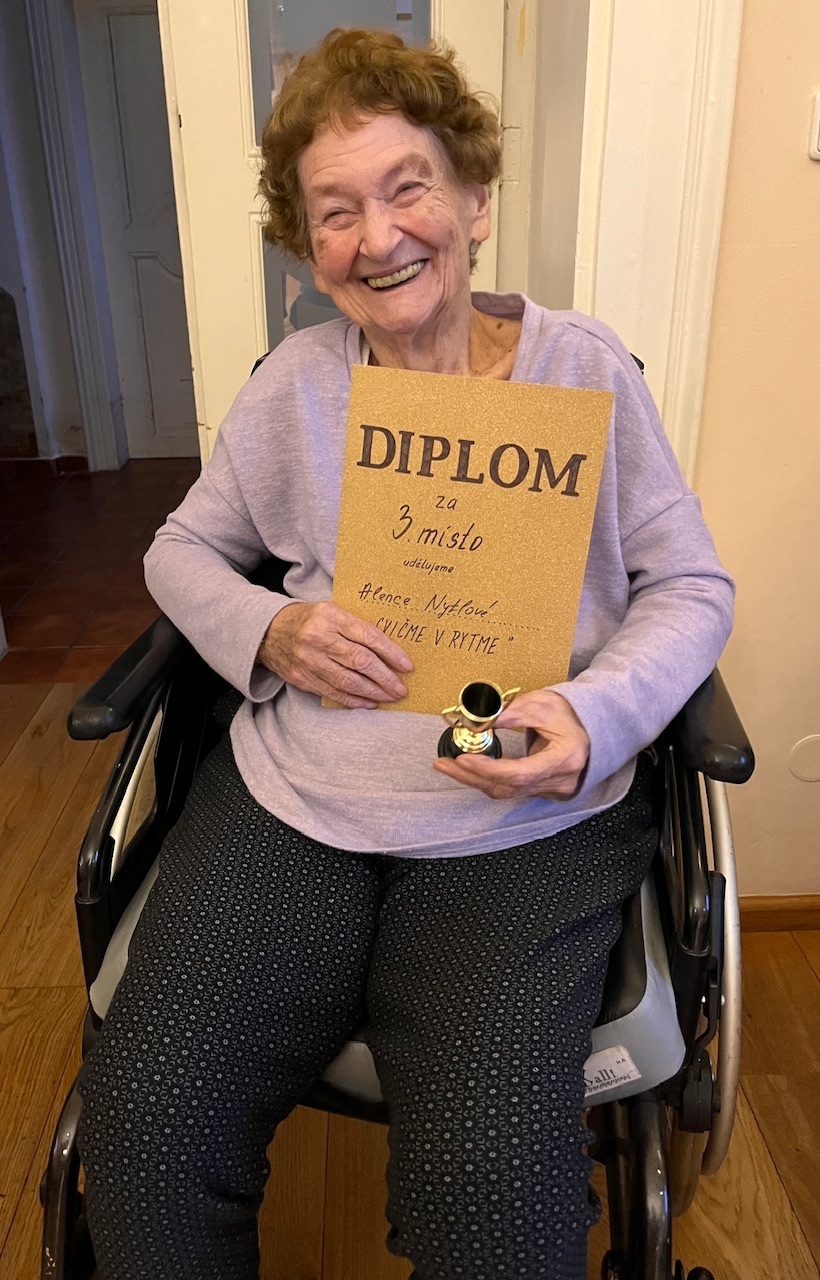 DIPLOM
za
3. místo
udělujeme
Alence Nytlové
„CVIČME V RYTME"